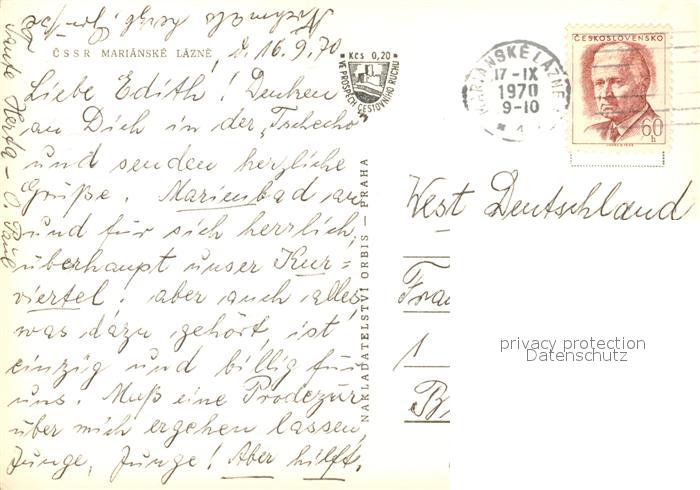 ČSSR MARIÁNSKÉ LÁZNĚ
d. 16.9.70
Liebe Edith! Denken
an Dich in der „Tschecho"
und senden herzliche
Grüße. Marienbad an
und für sich herrlich,
überhaupt unser Kur=
viertel. aber auch alles
was dazu gehört, ist
einzig und billig für
uns. Muß eine Prodezur
über mich ergehen lassen,
Junge, Junge! Aber hilft.
Tante Herta - O. Paul
Kčs 0,20
VE PROSPĚCH CESTOVNÍHO RUCHU
NAKLADATELSTVÍ ORBIS — PRAHA
MARIÁNSKÉ LÁZNĚ
17-IX
1970
9-10
ČESKOSLOVENSKO
60
h
West Deutschland
Frau
1
privacy protection
Datenschutz